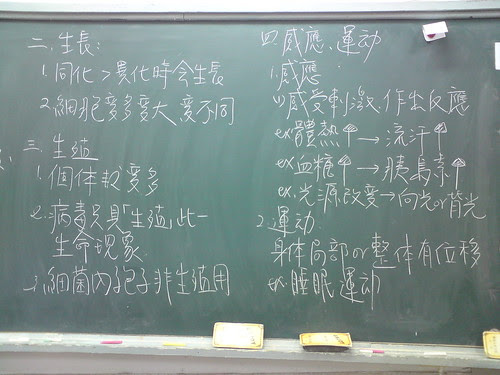 二.生長:
1.同化>異化時會生長
2.細胞變多變大、變不同
三.生殖
1.個体數變多
2.病毒只具「生殖」此一
生命現象.
3.細菌內孢子非生殖用
四.感應、運动
1.感應
(1)感受刺激.作出反應
ex.體熱↑→流汗↑
ex.血糖↑→胰島素↑
ex.光源改變→向光or背光
2.運動.
身体局部or整体有位移
ex.睡眠運动